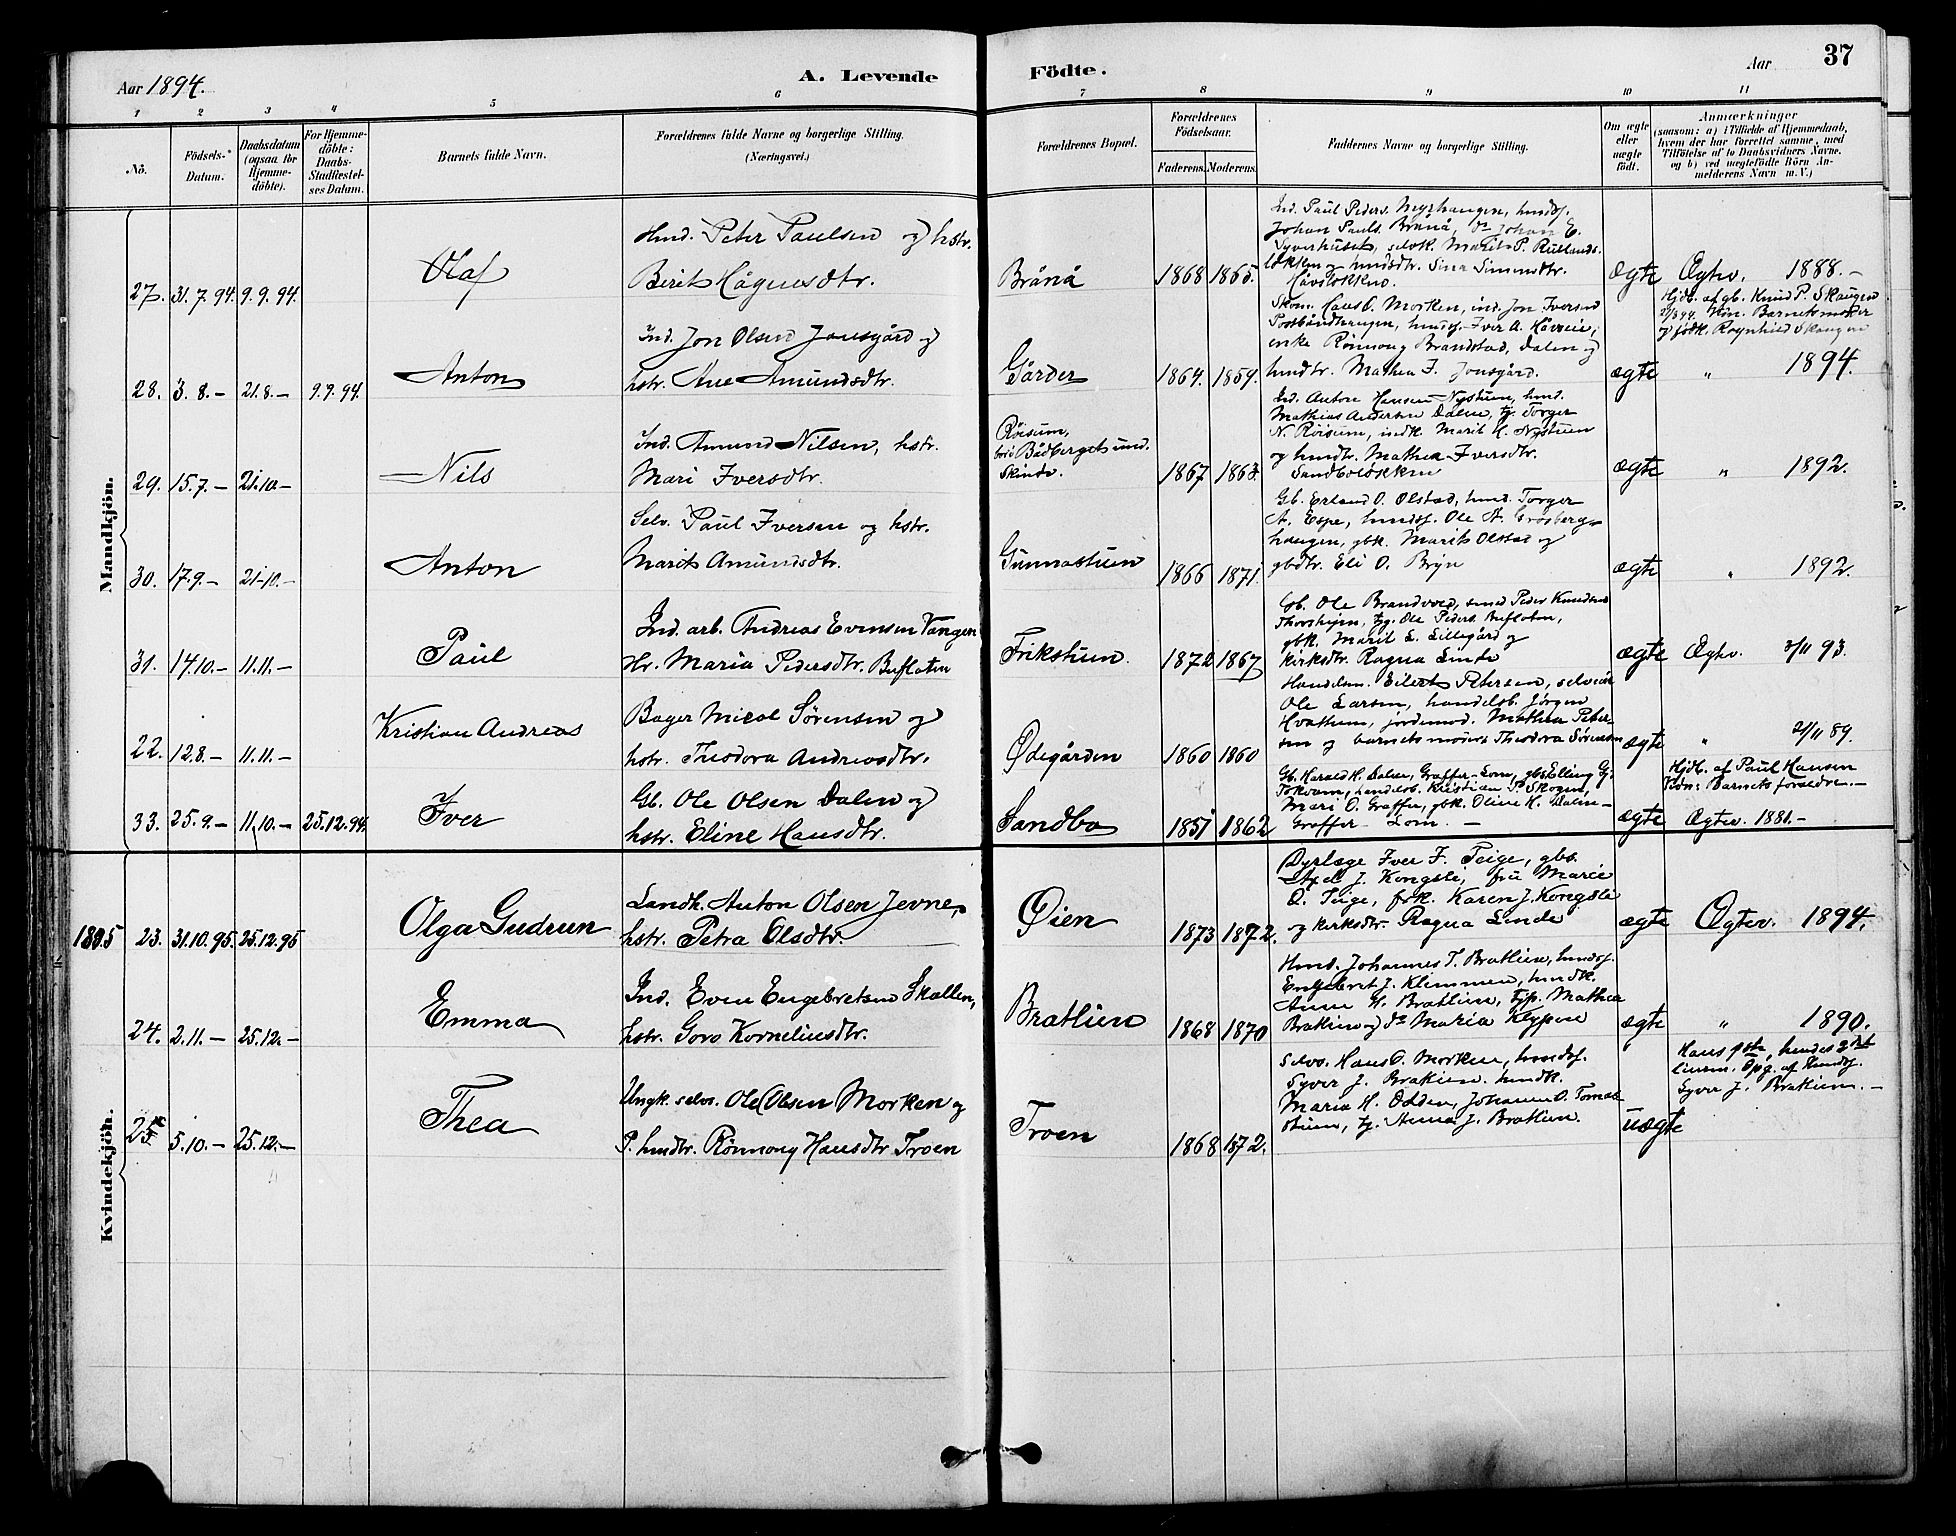 Aar 1894.
A. Levende
Födte.
Aar
37
1
2
3
4
5
6
7
8
9
10
11
No.
Födsels-
Datum.
Daabsdatum
(ogsaa for
Hjemme-
döbte).
For Hjemme-
döbte:
Daabs-
Stadfæstel-
ses Datum.
Barnets fulde Navn.
Forældrenes fulde Navne og borgerlige Stilling.
(Næringsvei.)
Forældrenes Bopæl.
Forældrenes
Födselsaar.
Faderens.
Moderens.
Faddernes Navne og borgerlige Stilling.
Om ægte
eller
uægte
født.
Anmærkninger
(saasom: a) i Tilfælde af Hjemmedaab,
hvem der har forrettet samme, med
Tilföielse af to Daabsvidners Navne.
og b) ved uægtefödte Börn An-
melderens Navn m. V.)
Mandkjön.
27. 31.7.94. 9.9.94.
Olaf
Hmd. Peter Paulsen og hstr.
Berit Hågensdtr.
Brånå
1868 1865.
Ind. Paul Peders. Myrhaugen, hmdsf.
Johan Pauls. Brånå, do Johan E.
Syverhuset, selvk. Marit P. Rutlands-
løkken og hmdsdtr. Sina Simensdtr.
Håvsløkken.
ægte
Ægtev. 1888.-
28. 3.8.- 21.8.- 9.9.94.
Anton
Ind. Jon Olsen Jonsgård og
hstr. Ane Amundsdtr.
Gårder
1864. 1859.
Skom. Hans O. Morken, ind. Jon Iversen
hmdsf. Iver A.
enke Rønnoug Brandstad, Dalen og
hmdtr. Mathea J. Jonsgård.
ægte
Hjdb. af gb. Knud P. Skaugen
Barnets moder
og Ragnhild Skaugen
" 1894.
29. 15.7.- 21.10.-
Nils
Ind. Amund Nilsen, hstr.
Mari Iversdtr.
Røisum,
Skinde.
1867 1863.
Ind. Anton Hansen Nystuen, hmd.
Mathias Andersen Dalen, tj. Torger
N. Røisum, indk. Marit H. Nystuen
og hmdtr. Mathea Iversdtr.
Sandboløkken
ægte
" 1892.
30. 17.9.- 21.10.-
Anton
Selv. Paul Iversen og hstr.
Marit Amundsdtr.
Gunnastuen
1866 1871.
Gb. Erland O. Olstad, hmd. Torger
A. Espe, hmdsf. Ole A. Grosberg-
haugen, gbk. Marit Olstad og
gbdtr. Eli O. Bryn
ægte
" 1892.
31. 14.10.- 11.11.-
Paul
Ind. arb. Andreas Evensen Vangen
Hr. Maria Pedersdtr. Buflaten
Frikstuen.
1872 1867
Gb. Ole Brandvold, smed Peder Knudsen
tj. Ole Peders. Buflaten,
gbk. Marit L. Lillegård og
kirksdtr. Ragna Linde
ægte
Ægtev. 3/11 93.
22. 12.8.- 11.11.-
Kristian Andreas
Bager Micol Sørensen og
hstr. Theodora Andreasdtr.
Ødegården
1860 1860
Handelsm. Eilert Petersen, selveier
Ole Larsen, handelsb. Jørgen
Hvattum, jordemod. Mathea Peter-
sen og barnets moder Theodora Sørensen
ægte
" 2/11 89.
33. 25.9.- 11.10.- 25.12.94.
Iver
Gb. Ole Olsen Dalen og
hstr. Eline Hansdtr.
Sandbo
1851 1862
Gb. Harald H. Dalen, Graffer-Lom, gbs. Elling Gj.
Tokvam, handelsb. Kristian P. Skogen,
Mari O. Graffer, gbk. Oline H. Dalen-
Graffer-Lom.-
ægte
Hjdb. af Paul Hansen
Vidn: Barnets forældre.-
Ægtev. 1881.-
Kvindekjön.
1895 23. 31.10.95. 25.12.95
Olga Gudrun
Landh. Anton Olsen Jevne,
hstr. Petra Olsdtr.
Øien
1873 1872.
Dyrlæge Iver F. Teige, gbs.
Axel J. Kongsli, fru Marie
O. Teige, frk. Karen J. Kongsli
og kirksdtr. Ragna Linde
ægte
Ægtev. 1894.
24. 2.11.- 25.12.-
Emma
Ind. Even Engebretsen Skallen,
hstr. Goro Korneliusdtr.
Bratlien
1868 1870
Hmd. Johannes T. Bratlien, hmdsf.
Engebret J. Klemmen, hmdk.
Anne H. Bratlien, tjp. Mathea
Bratlien og do Maria Klypen
ægte
" 1890.
25. 5.10.- 25.12.-
Thea
Ungk. selvs. Ole Olsen Morken og
P. hmdtr. Rønnoug Hansdtr Troen
Troen
1868 1872.
Selvs. Hans O. Morken, hmdsf.
Syver J. Bratlien, hmdk.
Maria H. Odden, Johanne O. Tomas-
stuen, tj. Anna J. Bratlien.
uægte
Hans 1ste, hendes 2det
Opg. af Hmdsf.
Syver J. Bratlien.-